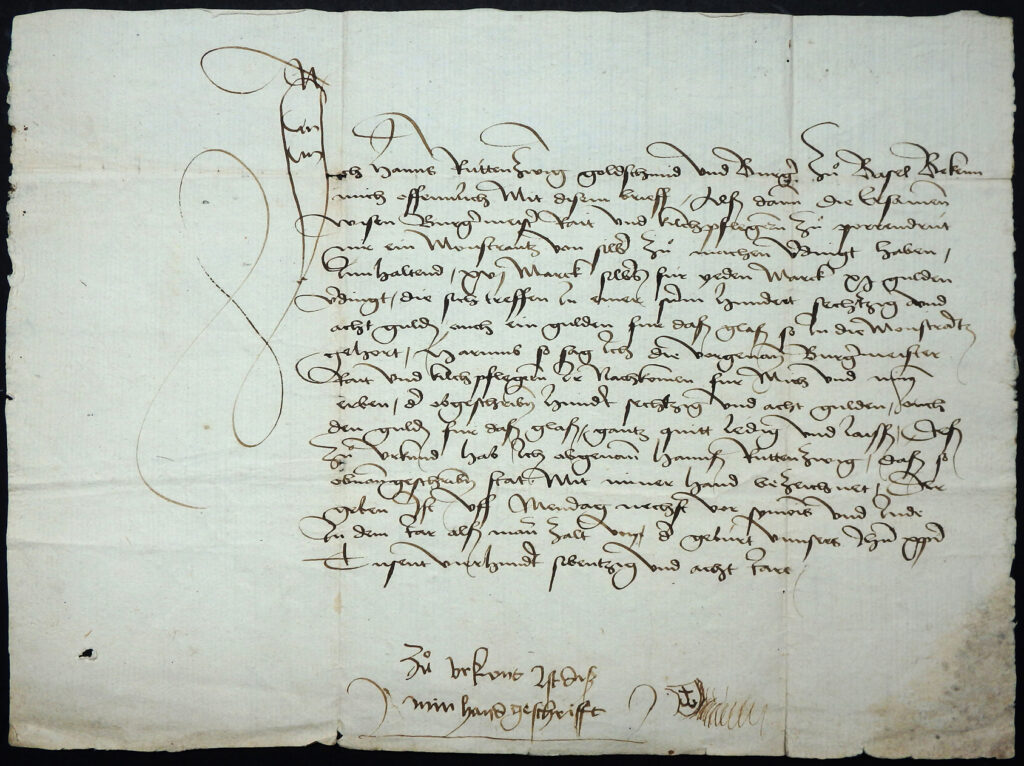 Ich Hanns Ruttenzwig goldschmid und Burger zů Basel Bekenn
mich offennlich Mit disem brieff / Als dann die Ersamen
wisen Burgermeister Rait und kilchpflegern zů porrendrut
mir ein Monstrantz von silber zů machen verdingt haben /
Innhaltend / xvj Marck silbers fur yeden Marck xj gulden
verdingt / die sich treffen In einer sum hundert sechtzig und
acht guldin ouch ein gulden fur das glas so In die Monstrantz
gehort / Harumb so sag Ich die vorgenanten Burgermeister
Rait und kilchpflegern Ir Nachkomen fur Mich und min
erben / der obgeschriben hundert sechtzig und acht gulden / ouch
den guldin fur das glas / gantz quitt ledig und lauss / Des
zů urkund hab Ich obgenant Hanns Ruttenzwig / das so
obnan geschriben stat Mit miner hand bezeichnet / Der
geben Ist uff Mendag nechst vor symonis und Jude
In dem Iar als man zalt von der geburt unnsers hern xpi
Tusent vierhundert sibentzig und acht Iare
Zů urkont ist dis
min hand geschrifft